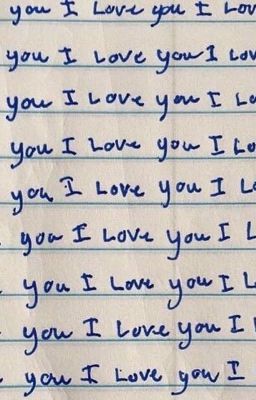 you I Love you I Lov
you I Love you I Lov
you I Love you I Lo
you I Love you I Lo
you I Love you I L
you I Love you I L
you I Love you I L
you I Love you I
you I Love you I